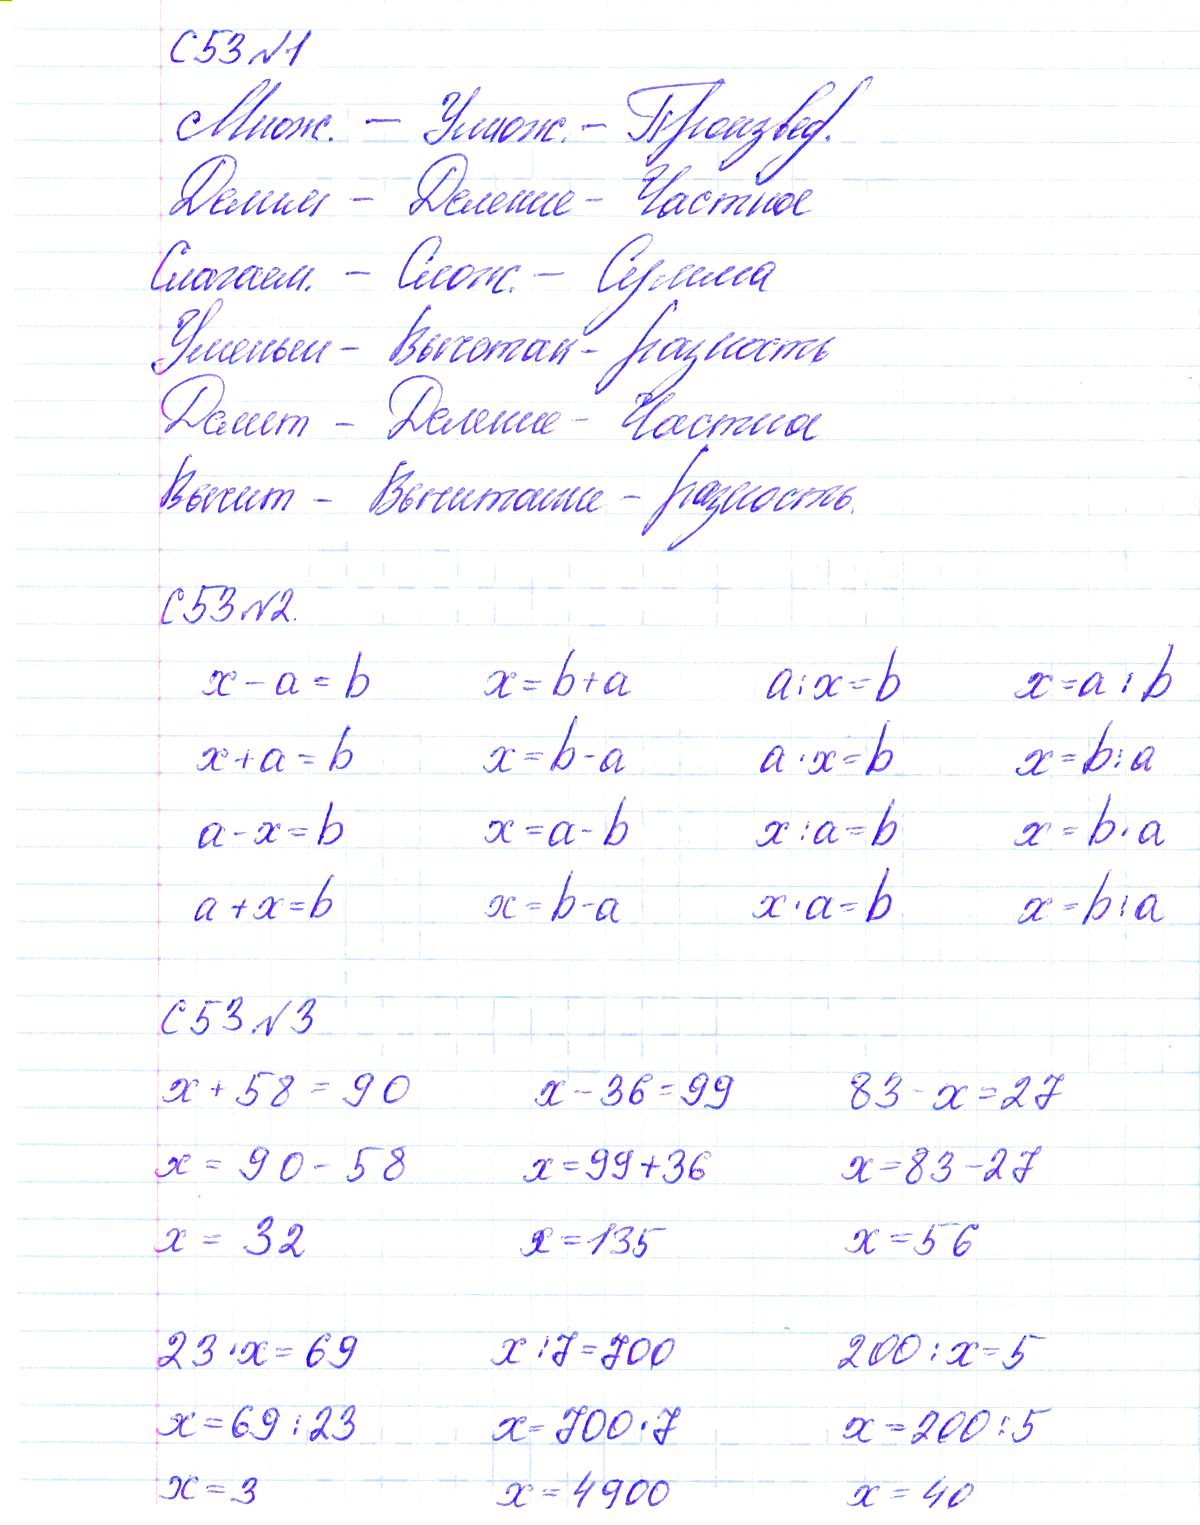 С 53 №1
Множ. — Умнож. – Произвед.
Делим – Деление – Частное
Слагаем. – Слож. – Сумма
Уменьш – Вычотан – разность
Делит – Деление – Частное
Вычит – Вычитание – разность.
С 53 №2.
x - a = b x = b + a a : x = b x = a : b
x + a = b x = b - a a · x = b x = b : a
a - x = b x = a - b x : a = b x = b · a
a + x = b x = b - a x · a = b x = b : a
С 53 №3
x + 58 = 90 x - 36 = 99 83 - x = 27
x = 90 - 58 x = 99 + 36 x = 83 - 27
x = 32 x = 135 x = 56
23 · x = 69 x : 7 = 700 200 : x = 5
x = 69 : 23 x = 700 · 7 x = 200 : 5
x = 3 x = 4900 x = 40